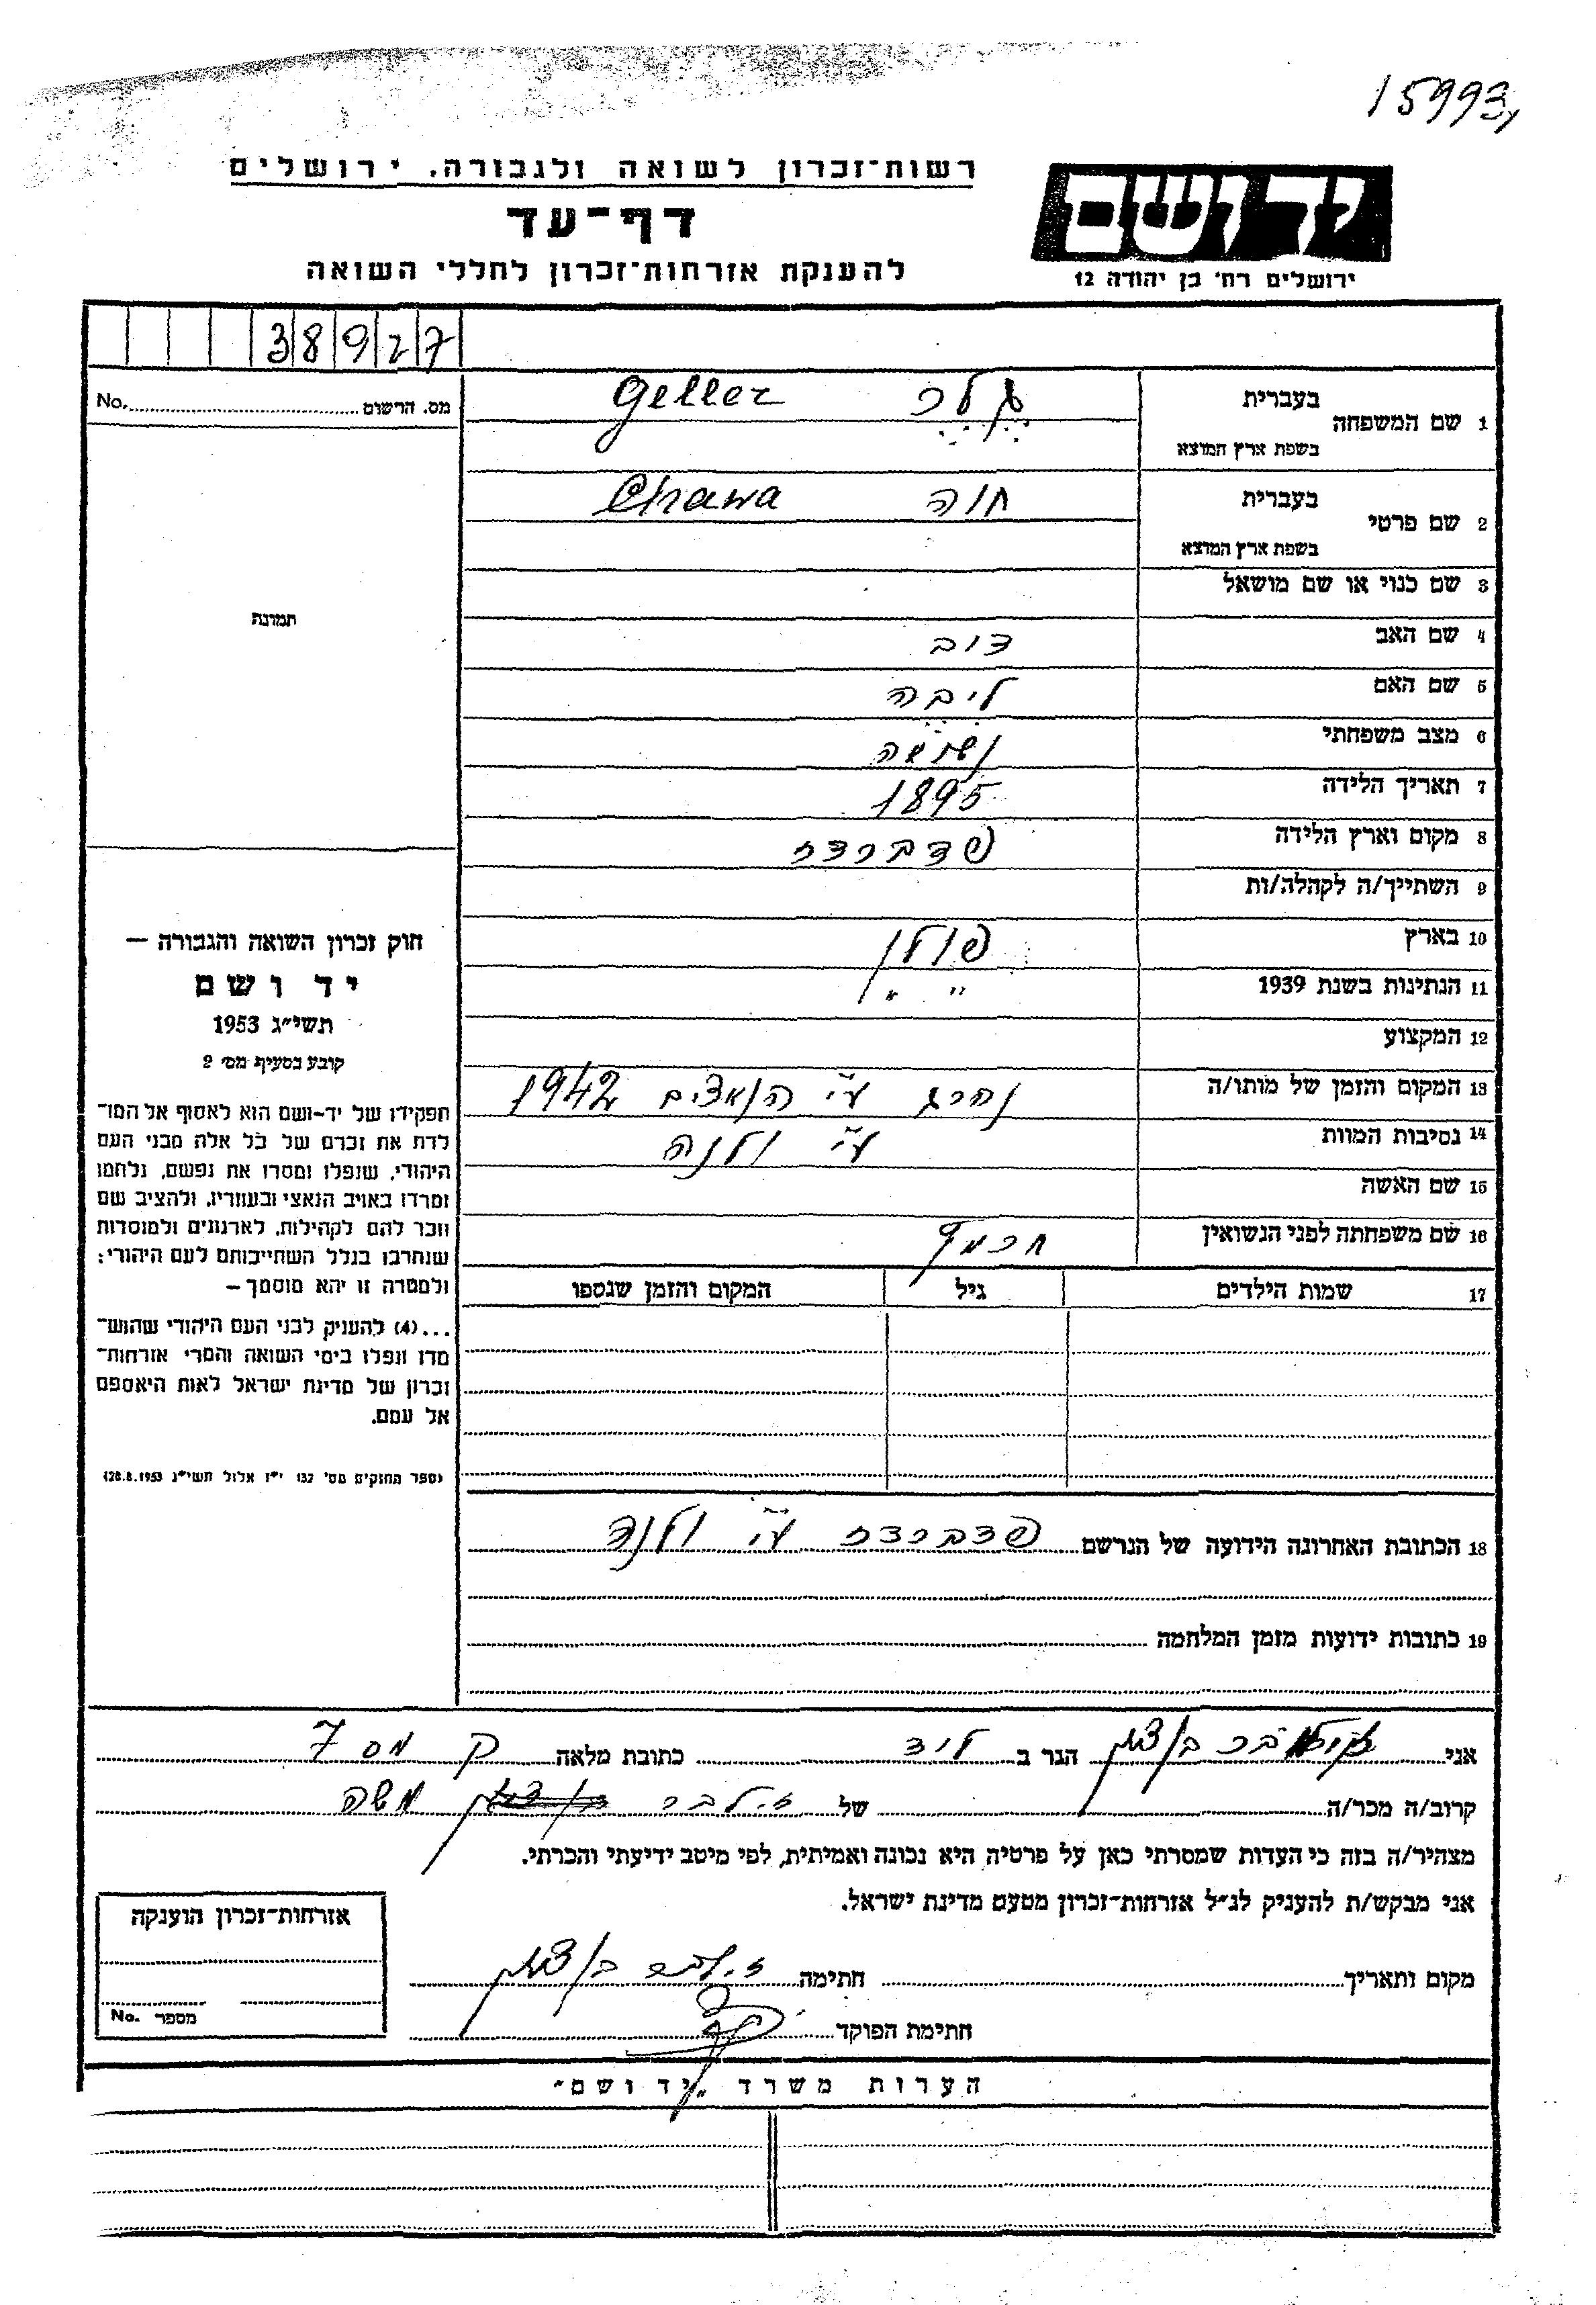 15993
רשות־זכרון לשואה ולגבורה, ירושלים
דף־עד
להענקת אזרחות־זכרון לחללי השואה
יד ושם
ירושלים רח' בן יהודה 12
38927
מס. הרישום No.
תמונה
1 שם המשפחה בעברית גלר Geller
בשפת ארץ המוצא
2 שם פרטי בעברית חוה Chawa
בשפת ארץ המוצא
3 שם כנוי או שם מושאל
4 שם האב דוב
5 שם האם ליבה
6 מצב משפחתי נשואה
7 תאריך הלידה 1895
8 מקום וארץ הלידה פודברדז
9 השתייך/ה לקהלה/ות
10 בארץ פולן
11 הנתינות בשנת 1939 " "
12 המקצוע
13 המקום והזמן של מותו/ה נהרג ע"י הנאצים 1942
14 נסיבות המוות ע"י וילנה
15 שם האשה
16 שם משפחתה לפני הנשואין
17 שמות הילדים גיל המקום והזמן שנספו
חוק זכרון השואה והגבורה –
יד ושם
תשי"ג 1953
קובע בסעיף מס' 2
תפקידו של יד-ושם הוא לאסוף אל המו־
לדת את זכרם של כל אלה מבני העם
היהודי, שנפלו ומסרו את נפשם, נלחמו
ומרדו באויב הנאצי ובעוזריו, ולהציב שם
וזכר להם לקהילות, לארגונים ולמוסדות
שנחרבו בגלל השתייכותם לעם היהודי;
ולמטרה זו יהא מוסמך –
...(4) להעניק לבני העם היהודי שהוש־
מדו ונפלו בימי השואה והמרי אזרחות־
זכרון של מדינת ישראל לאות היאספם
אל עמם.
(ספר החוקים מס' 132 י"ז אלול תשי"ג 28.8.1953)
18 הכתובת האחרונה הידועה של הנרשם פודברדז ע"י וילנה
19 כתובות ידועות מזמן המלחמה
אני זילבר בן ציון הגר ב לוד כתובת מלאה ק מס 7
קרוב/ה מכר/ה של זילבר משה
מצהיר/ה בזה כי העדות שמסרתי כאן על פרטיה היא נכונה ואמיתית, לפי מיטב ידיעתי והכרתי.
אני מבקש/ת להעניק לנ"ל אזרחות־זכרון מטעם מדינת ישראל.
מקום ותאריך חתימה זילבר בן ציון
חתימת הפוקד
אזרחות־זכרון הוענקה
מספר No.
הערות משרד "יד ושם"